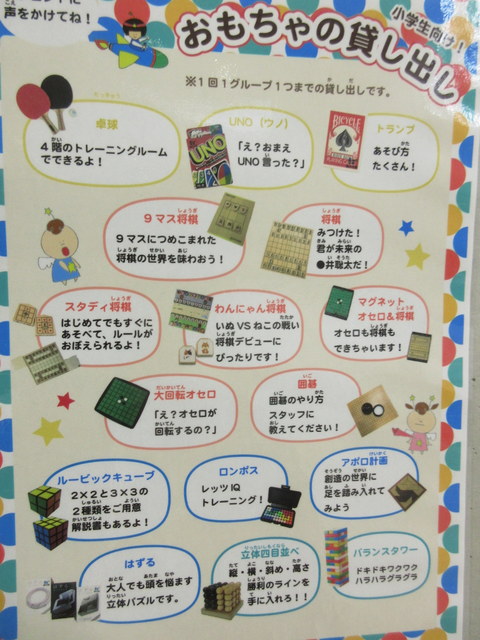 声をかけてね！
おもちゃの貸し出し
小学生向け！
※1回1グループ1つまでの貸し出しです。
卓球
4階のトレーニングルーム
でできるよ！
UNO（ウノ）
「え？おまえ
UNO言った？」
UNO
トランプ
あそび方
たくさん！
BICYCLE
9マス将棋
9マスにつめこまれた
将棋の世界を味わおう！
将棋
みつけた！
君が未来の
●井聡太だ！
スタディ将棋
はじめてでもすぐに
あそべて、ルールが
おぼえられるよ！
わんにゃん将棋
いぬVSねこの戦い
将棋デビューに
ぴったりです！
マグネット
オセロ&将棋
オセロも将棋も
できちゃいます！
大回転オセロ
「え？オセロが
回転するの？」
囲碁
囲碁のやり方
スタッフに
教えてください！
ルービックキューブ
2×2と3×3の
2種類をご用意
解説書もあるよ！
ロンポス
レッツIQ
トレーニング！
アポロ計画
創造の世界に
足を踏み入れて
みよう
はずる
大人でも頭を悩ます
立体パズルです。
立体四目並べ
縦・横・斜め・高さ
勝利のラインを
手に入れろ！！
バランスタワー
ドキドキワクワク
ハラハラグラグラ